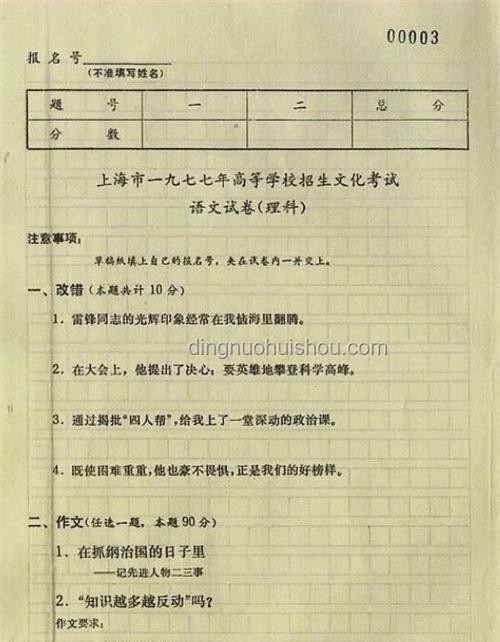 00003
报名号
(不准填写姓名)
题 号 一 二 总 分
分 数
上海市一九七七年高等学校招生文化考试
语文试卷(理科)
注意事项:
草稿纸填上自己的报名号,夹在试卷内一并交上。
一、改错(本题共计10分)
1.雷锋同志的光辉印象经常在我恼海里翻腾。
dingnuohuishou.com
2.在大会上,他提出了决心:要英雄地攀登科学高峰。
3.通过揭批“四人帮”,给我上了一堂深动的政治课。
4.既使困难重重,他也豪不畏惧,正是我们的好榜样。
二、作文(任选一题,本题90分)
1.在抓纲治国的日子里
——记先进人物二三事
2.“知识越多越反动”吗?
作文要求: